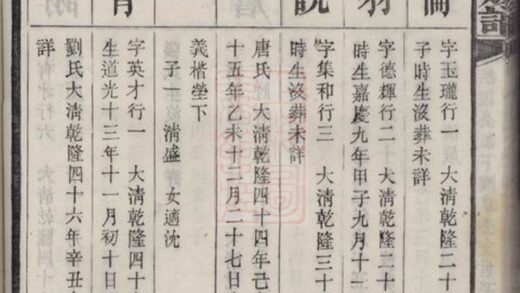 字玉瓏行一　大清乾隆二十
子時生沒葬未詳
字德輝行二　大清乾隆二十
時生嘉慶九年甲子九月十一
說
字集和行三　大清乾隆三十
時生沒葬未詳
唐氏　大清乾隆四十四年己
十五年乙未十二月二十七日
義楷塋下
子一　淸盛　女適沈
字英才行一　大清乾隆四十
生道光十三年十一月初十日
劉氏大清乾隆四十六年辛丑
詳